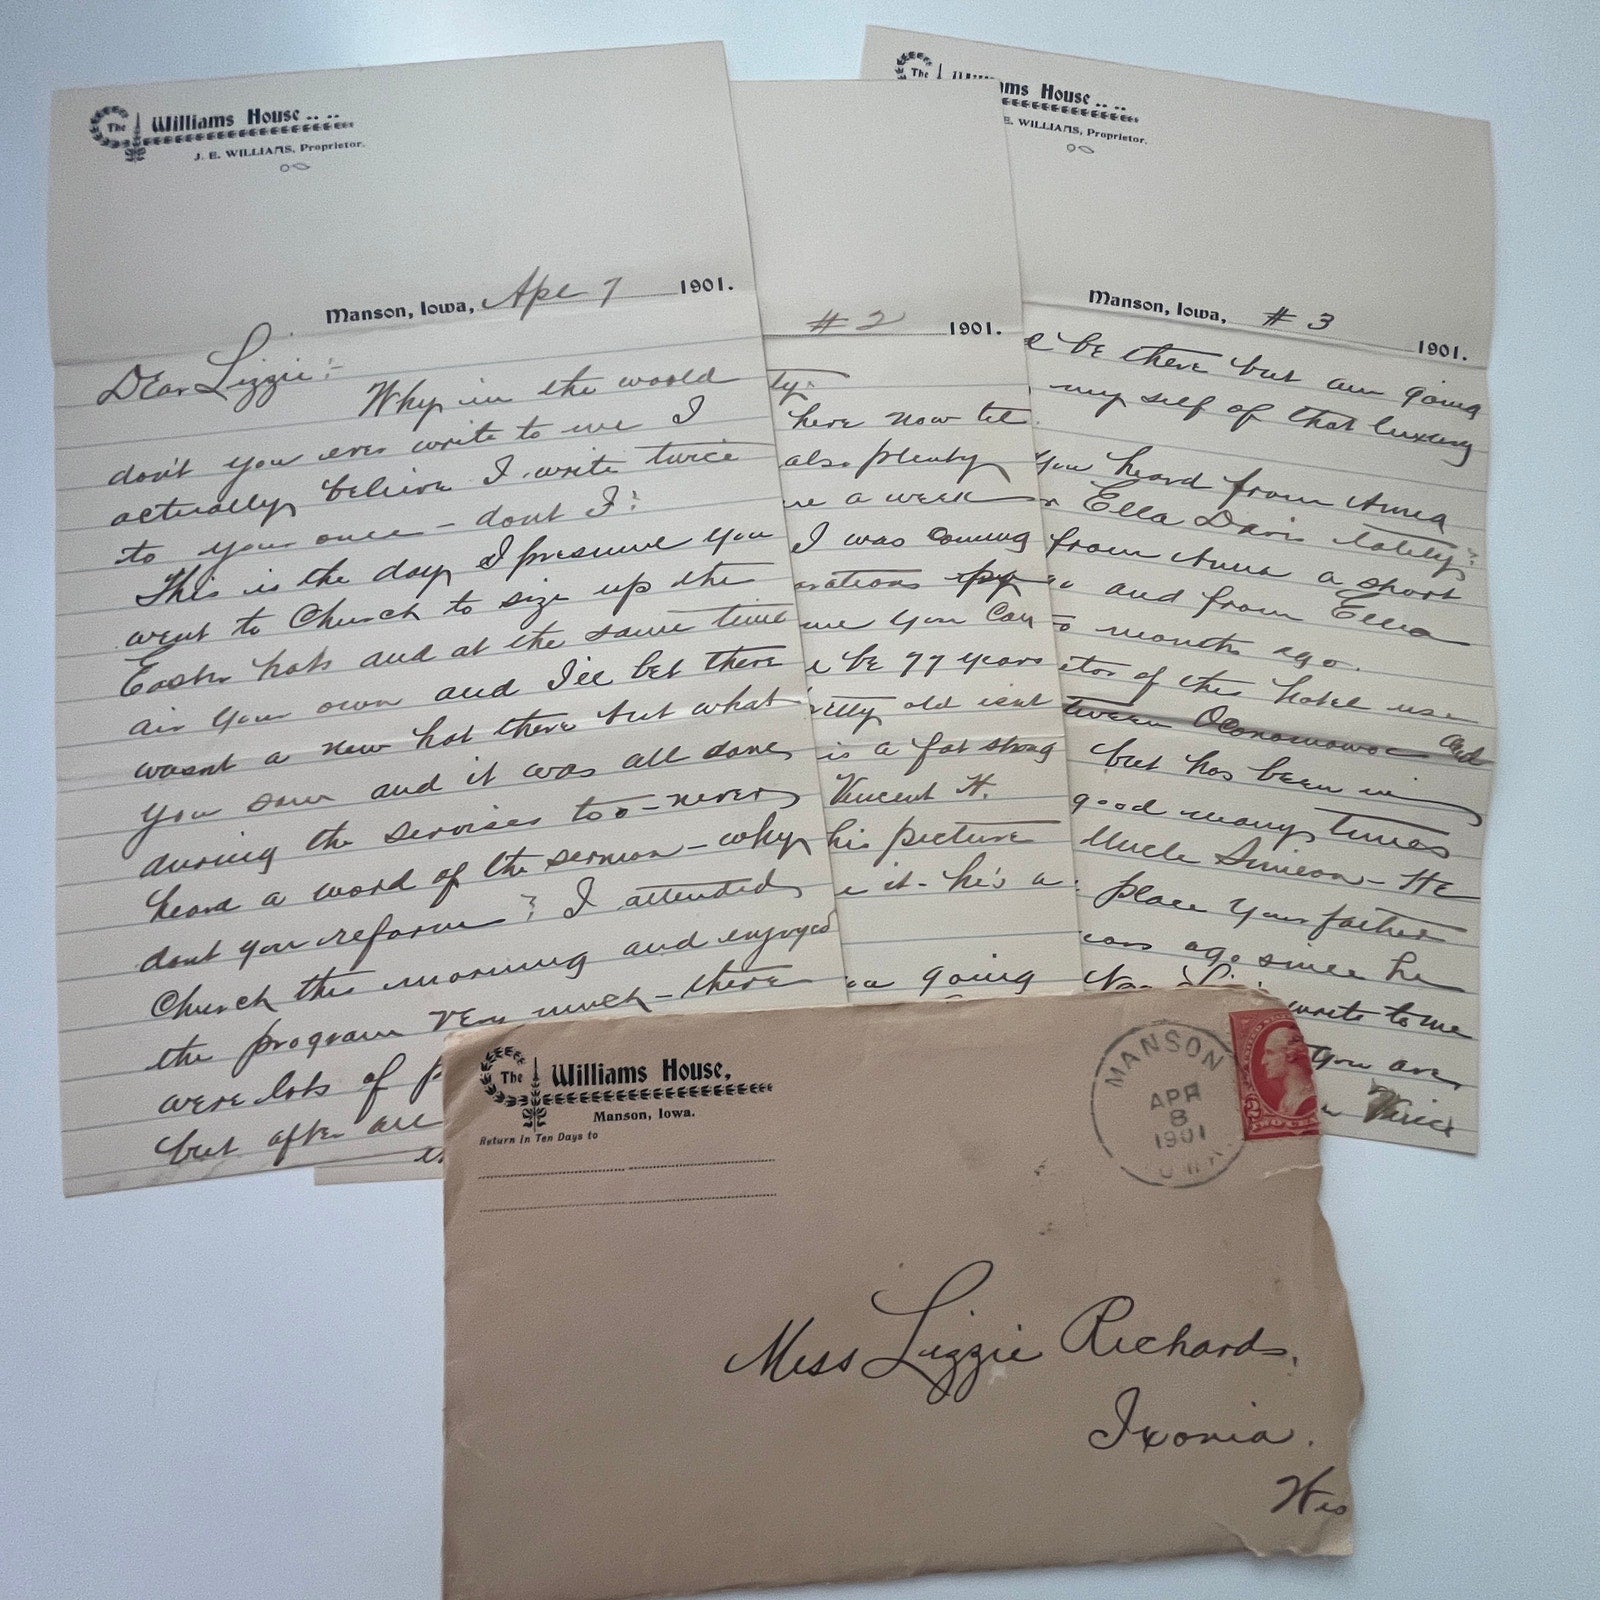 The Williams House . . . .
J. E. WILLIAMS, Proprietor.
Manson, Iowa, Apl 7 1901.
Dear Lizzie:-
Why in the world
don't you ever write to me I
actually believe I write twice
to your once - dont I?
This is the day I presume you
went to Church to size up the
Easter hats and at the same time
air your own and I'll bet there
wasnt a new hat there but what
you saw and it was all done
during the servises too - never
heard a word of the sermon - why
dont you reform? I attended
Church this morning and enjoyed
the program very much - there
were lots of
but after all
# 2 1901.
ty:
here now til
also plenty
a week
I was coming
me you can
be 77 years
old isnt
is a fat strong
Vincent H.
his picture
it - he's a
going
The ms House . . . .
E. WILLIAMS, Proprietor.
Manson, Iowa, # 3 1901.
be there but am going
my self of that luxury
you heard from Anna
Ella Davis lately?
from Anna a short
and from Ella
months ago.
of this hotel use
Oconomowoc and
but has been in
good many times
Uncle Simeon - He
place your father
ago since he
write to me
you are
Vince
The Williams House,
Manson, Iowa.
Return In Ten Days to
MANSON
APR
8
1901
IOWA
2
Miss Lizzie Richards,
Ixonia.
Wis